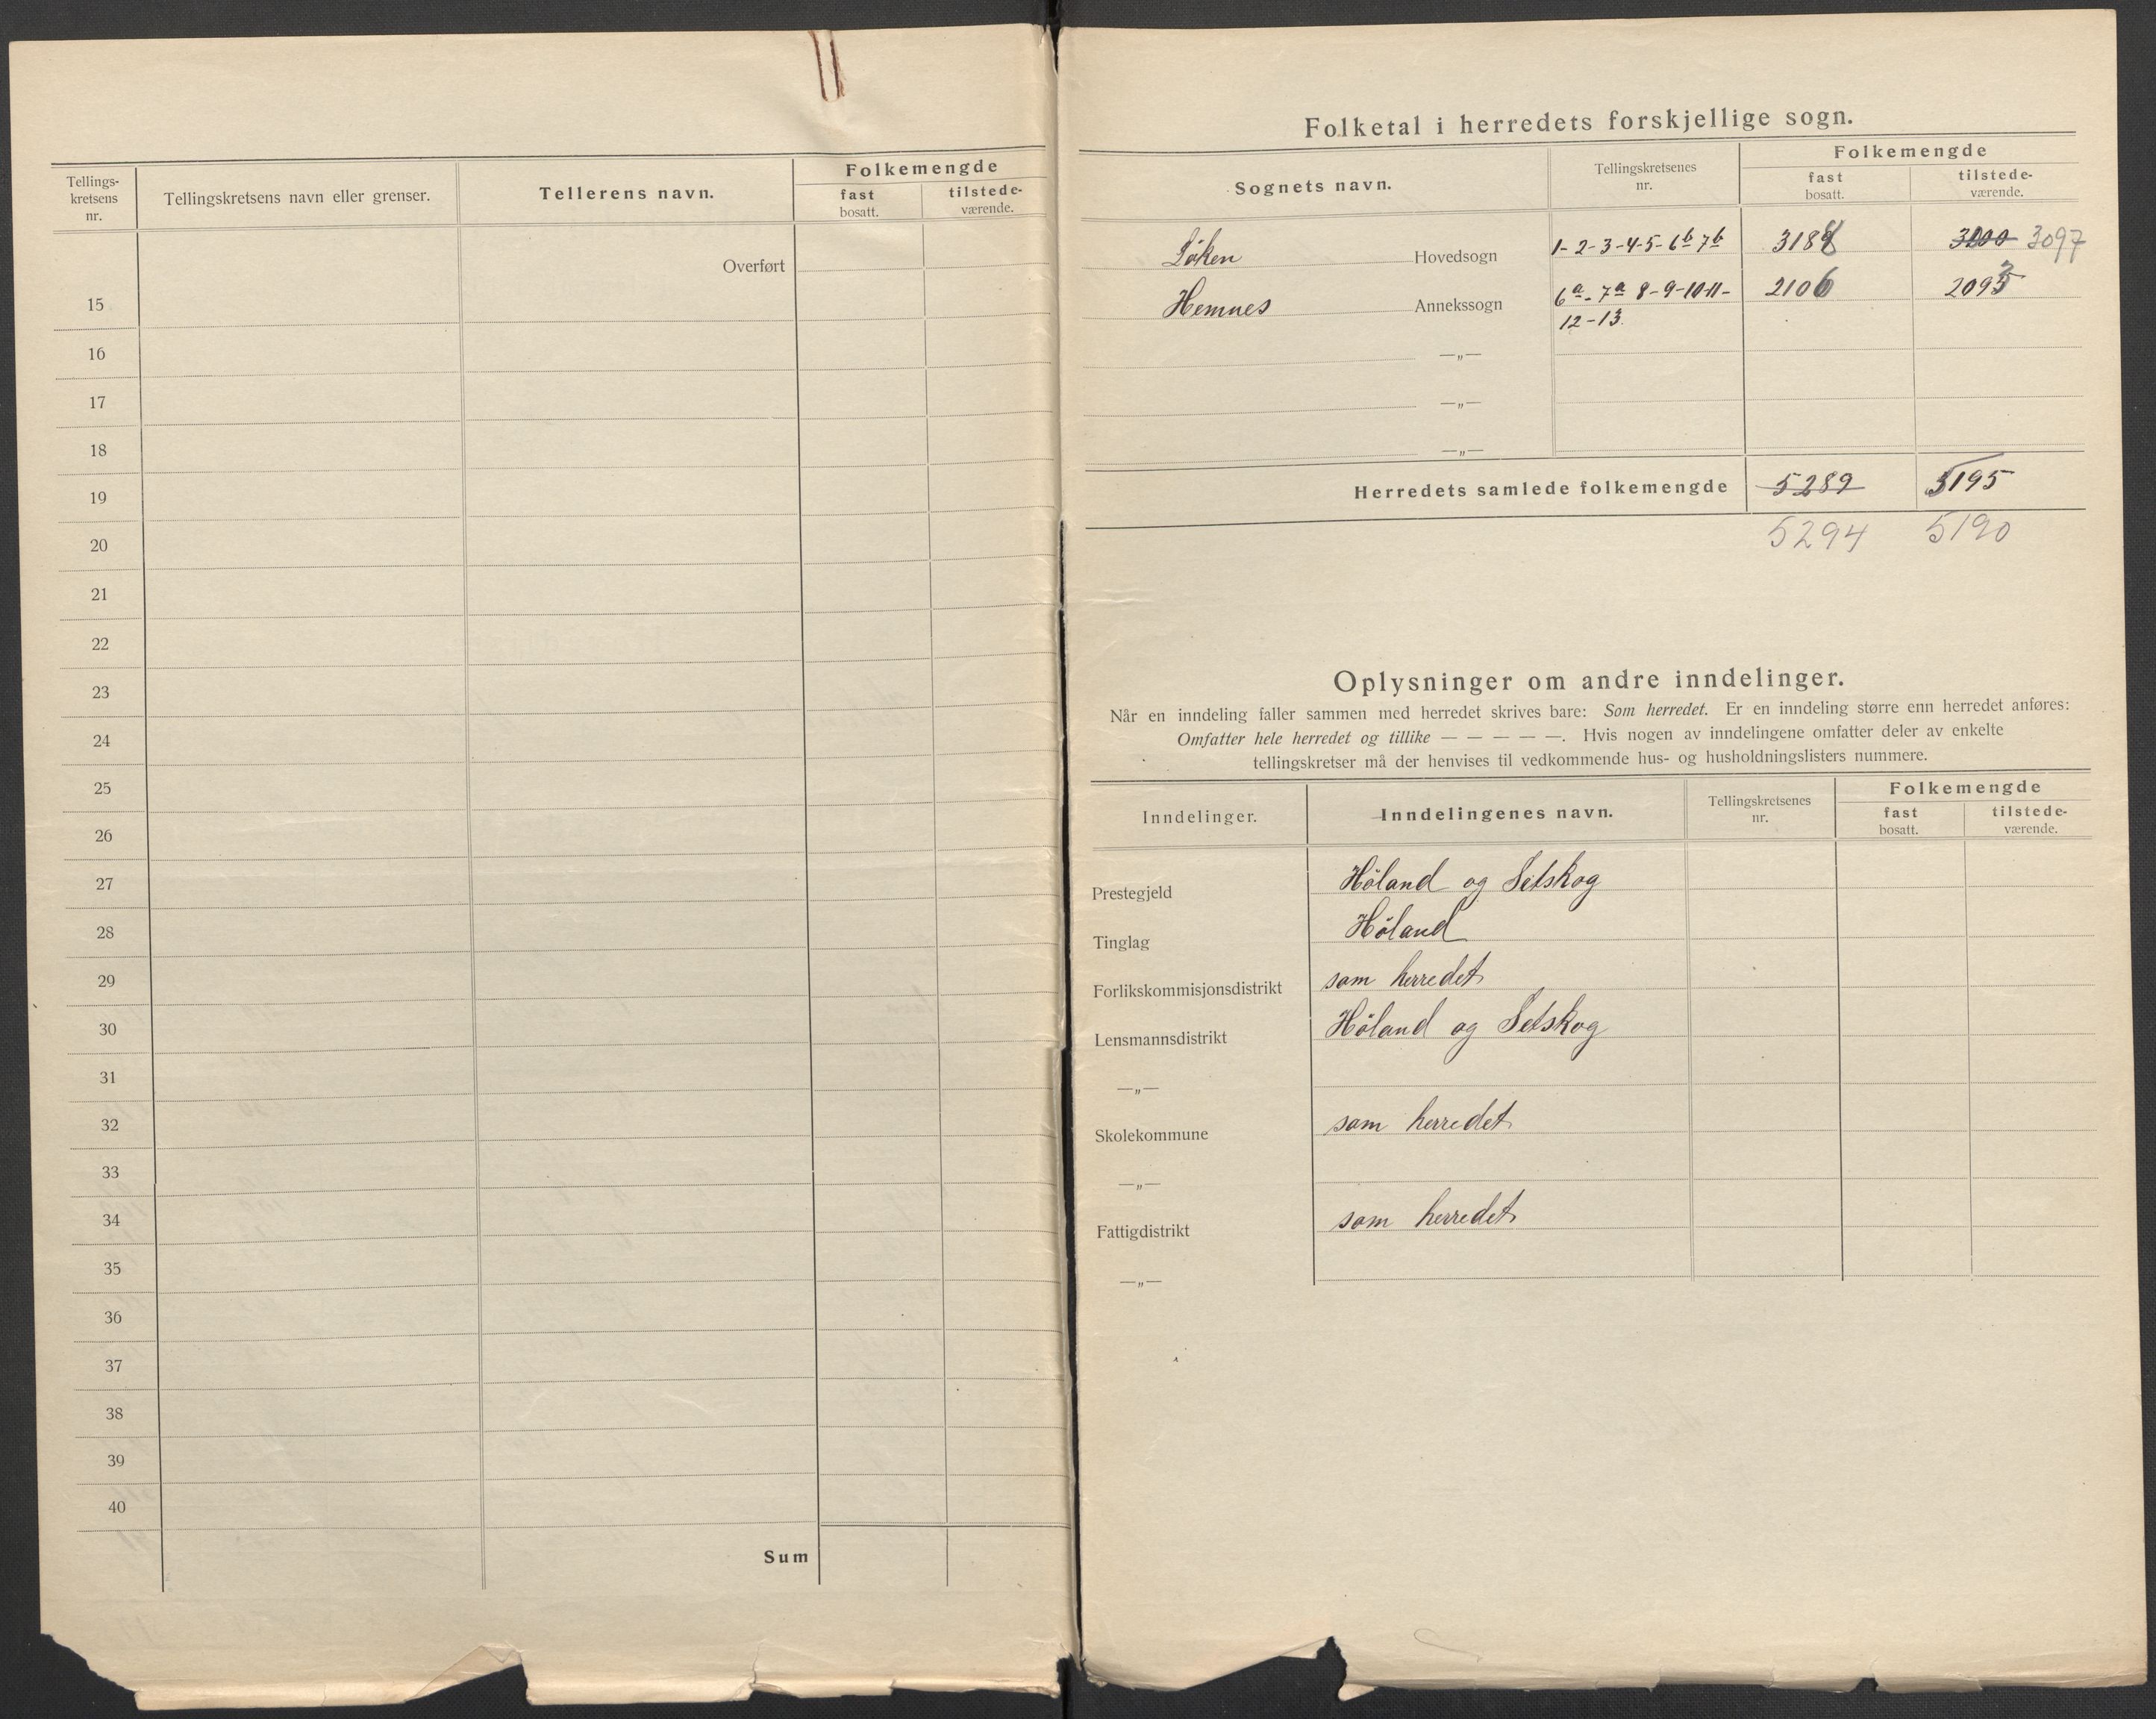 Tellings-
kretsens
nr.
Tellingskretsens navn eller grenser.
Tellerens navn.
Folkemengde
fast
bosatt.
tilstede-
værende.
Overført
15
16
17
18
19
20
21
22
23
24
25
26
27
28
29
30
31
32
33
34
35
36
37
38
39
40
Sum
Folketal i herredets forskjellige sogn.
Sognets navn.
Tellingskretsenes
nr.
Folkemengde
fast
bosatt.
tilstede-
værende.
Löken Hovedsogn 1-2-3-4-5-6b 7b 3188 3100 3097
Hemnes Annekssogn 6a-7a 8-9-10-11- 2106 2093
12-13
—„—
—„—
—„—
Herredets samlede folkemengde 5289 5195
5294 5190
Oplysninger om andre inndelinger.
Når en inndeling faller sammen med herredet skrives bare: Som herredet. Er en inndeling større enn herredet anføres:
Omfatter hele herredet og tillike — — — — —. Hvis nogen av inndelingene omfatter deler av enkelte
tellingskretser må der henvises til vedkommende hus- og husholdningslisters nummere.
Inndelinger.
Inndelingenes navn.
Tellingskretsenes
nr.
Folkemengde
fast
bosatt.
tilstede-
værende.
Prestegjeld Höland og Setskog
Tinglag Höland
Forlikskommisjonsdistrikt som herredet
Lensmannsdistrikt Höland og Setskog
—„—
Skolekommune som herredet
—„—
Fattigdistrikt som herredet
—„—